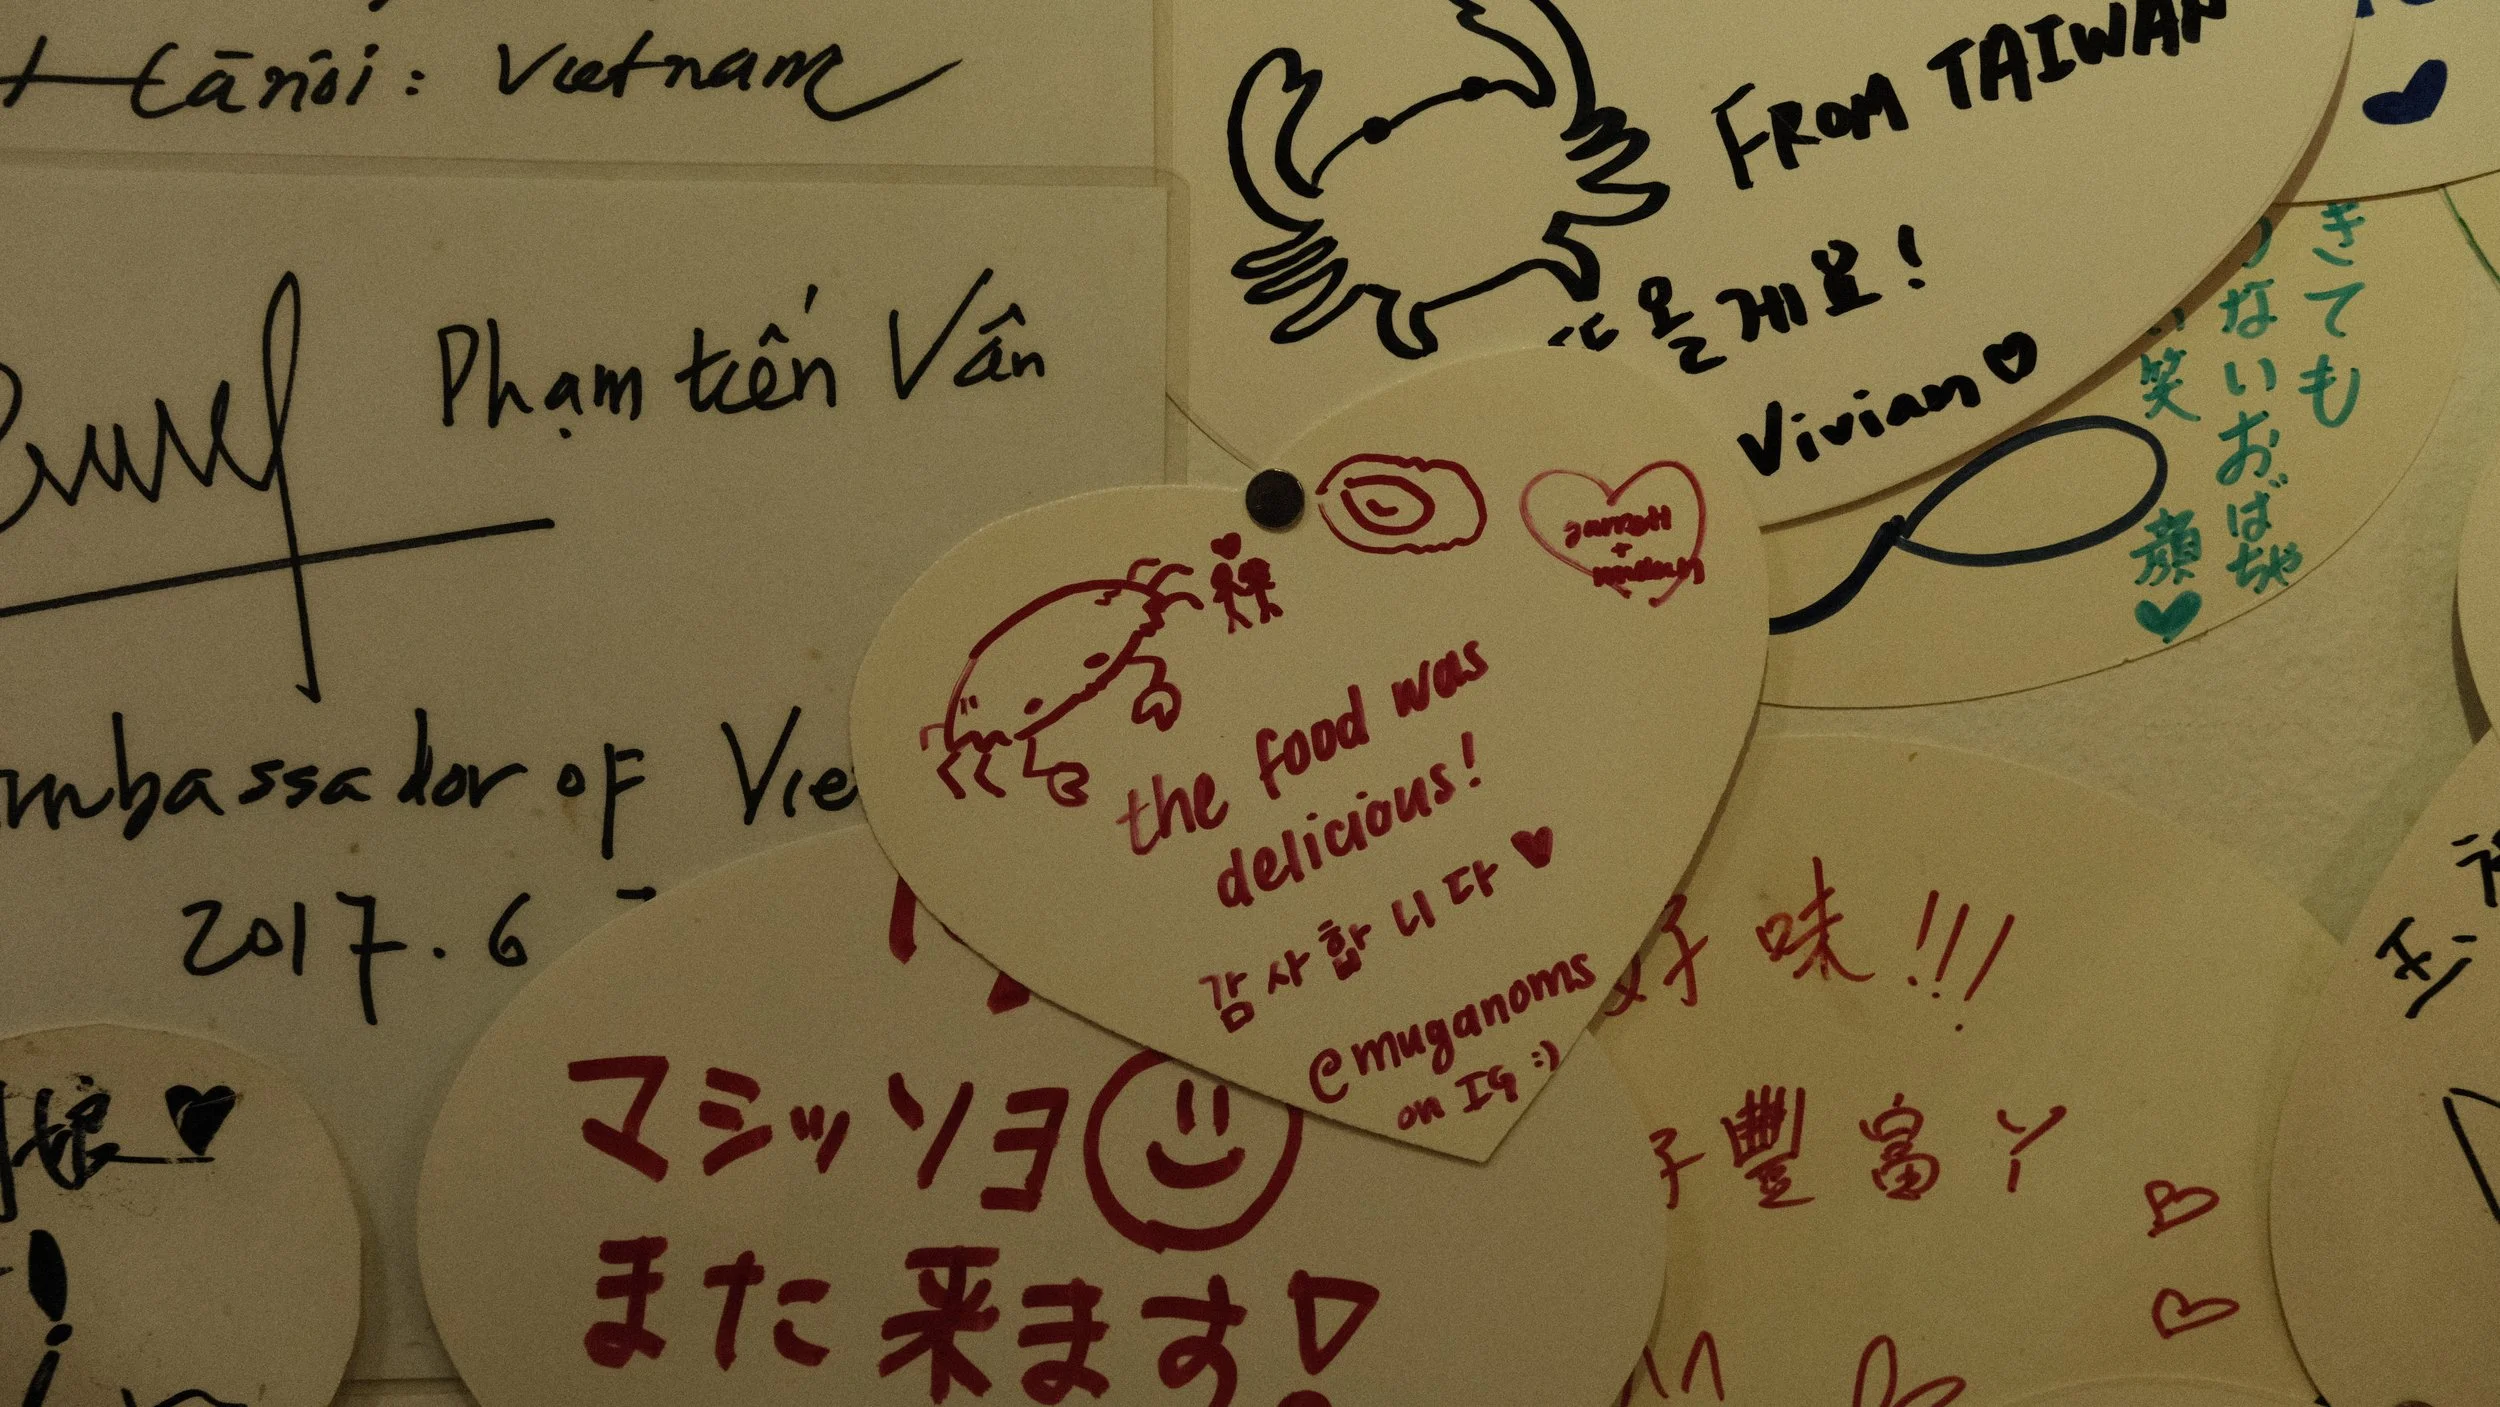 Hà nội: Vietnam
Phạm tiến Vấn
Ambassador of Vie
2017.6
FROM TAIWAN
또 올게요!
Vivian
きても
ないおばちゃ
笑顔
garrett
+
the food was
delicious!
감사합니다
@muganoms
on IG :)
好味!!!
豐富丫
マシッソヨ
また来ます!
娘
!